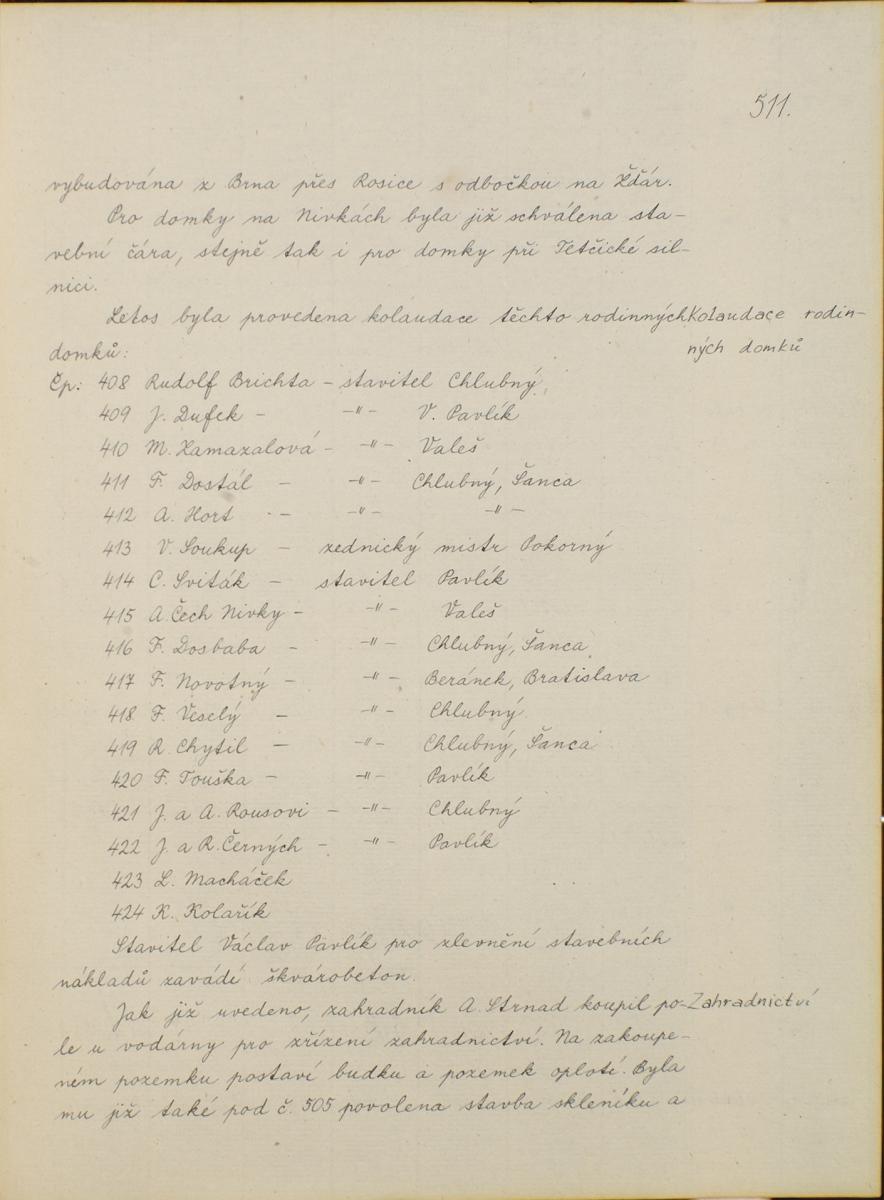 511.
vybudována z Brna přes Rosice s odbočkou na Žďár.
Pro domky na Nivkách byla již schválena sta-
vební čára, stejně tak i pro domky při Tetčické sil-
nici.
Letos byla provedena kolaudace těchto rodinných
Kolaudace rodin-
ných domků
domků:
Čp: 408 Rudolf Brichta - stavitel Chlubný
409 J. Dufek - -"- V. Pavlík
410 M. Zamazalová - -"- Valeš
411 F. Dostál - -"- Chlubný, Šanca
412 A. Hort - -"- -"-
413 V. Soukup - zednický mistr Pokorný
414 C. Sviták - stavitel Pavlík
415 A. Čech Nivky - -"- Valeš
416 F. Dosbaba - -"- Chlubný, Šanca
417 F. Novotný - -"- Beránek, Bratislava
418 F. Veselý - -"- Chlubný
419 R. Chytil - -"- Chlubný, Šanca
420 F. Touška - -"- Pavlík
421 J. a A. Rousovi - -"- Chlubný
422 J. a R. Černých - -"- Pavlík
423 L. Macháček
424 K. Kolařík
Stavitel Václav Pavlík pro zlevnění stavebních
nákladů zavádí škvárobeton.
Jak již uvedeno, zahradník A. Strnad koupil po-
Zahradnictví
le u vodárny pro zřízení zahradnictví. Na zakoupe-
ném pozemku postaví budku a pozemek oplotí. Byla
mu již také pod č. 505 povolena stavba skleníku a